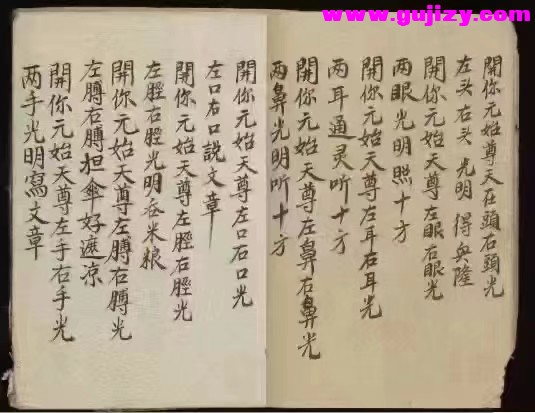 www.gujizy.com
開你元始尊天在頭右頭光
左头右头光明得兴隆
開你元始天尊左眼右眼光
两眼光明照十方
開你元始天尊左耳右耳光
两耳通灵听十方
開你元始天尊左鼻右鼻光
两鼻光明听十方
開你元始天尊左口右口光
左口右口說文章
開你元始天尊左脛右脛光
左脛右脛光明吞米粮
開你元始天尊左膊右膊光
左膊右膊担傘好遮凉
開你元始天尊左手右手光
两手光明寫文章